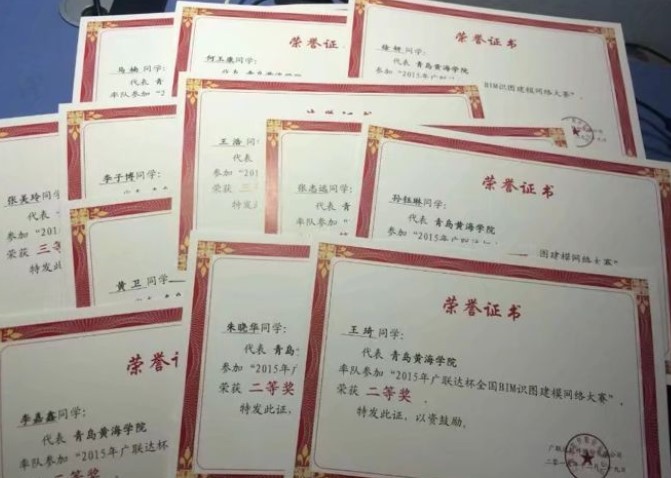 马楠同学:
代表 青
率队参加 "2
何玉康同学:
代表 青
荣誉证书
徐
同学:
代表 青岛黄海学院
参加 "2015年广联
BIM识图建模网络大赛".
张美玲同学
代表
参加 "201
荣获 三等
特发此
李子博同学:
王浩同
代表
参加 "20
荣获 三
特发
张志远同学:
代表 青
率队参加 "20
荣誉证书
孙钰琳同学:
代表 青岛黄海学院
参加 "2015年广联
图建模网络大赛"
黄卫同学
荣誉证
李嘉鑫同学:
代表 青岛黄海学院
率队参加 "2015年广联达杯
二等奖
朱晓华同学:
代表 青岛
参加 "2015年广
荣获 二等奖
特发此证,
荣誉证书
王琦同学:
代表 青岛黄海学院
率队参加 "2015年广联达杯全国BIM识图建模网络大赛".
荣获 二等奖 .
特发此证, 以资鼓励.